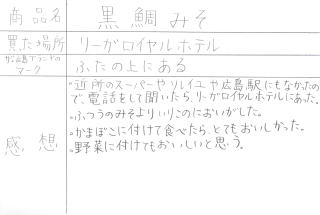 商品名 黒鯛みそ
買った場所 リーガロイヤルホテル
マーク ふたの上にある
感想
・近所のスーパーやソレイユや広島駅にもなかったの
で、電話をして聞いたら、リーガロイヤルホテルにあった。
・ふつうのみそよりいりこのにおいがした。
・かまぼこに付けて食べたら、とてもおいしかった。
・野菜に付けてもおいしいと思う。